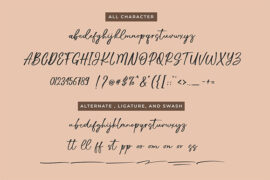 ALL CHARACTER
abcdefghijklmnopqrstuvwxyz
ABCDEFGHIJKLMNOPQRSTUVWXYZ
0123456789 !?@#$%^&*(){}[]:;"'<>,..._-+=
ALTERNATE , LIGATURE, AND SWASH
abcdefghijklmnopqrstuvwxyz
tt ll ff st pp or om on or ss